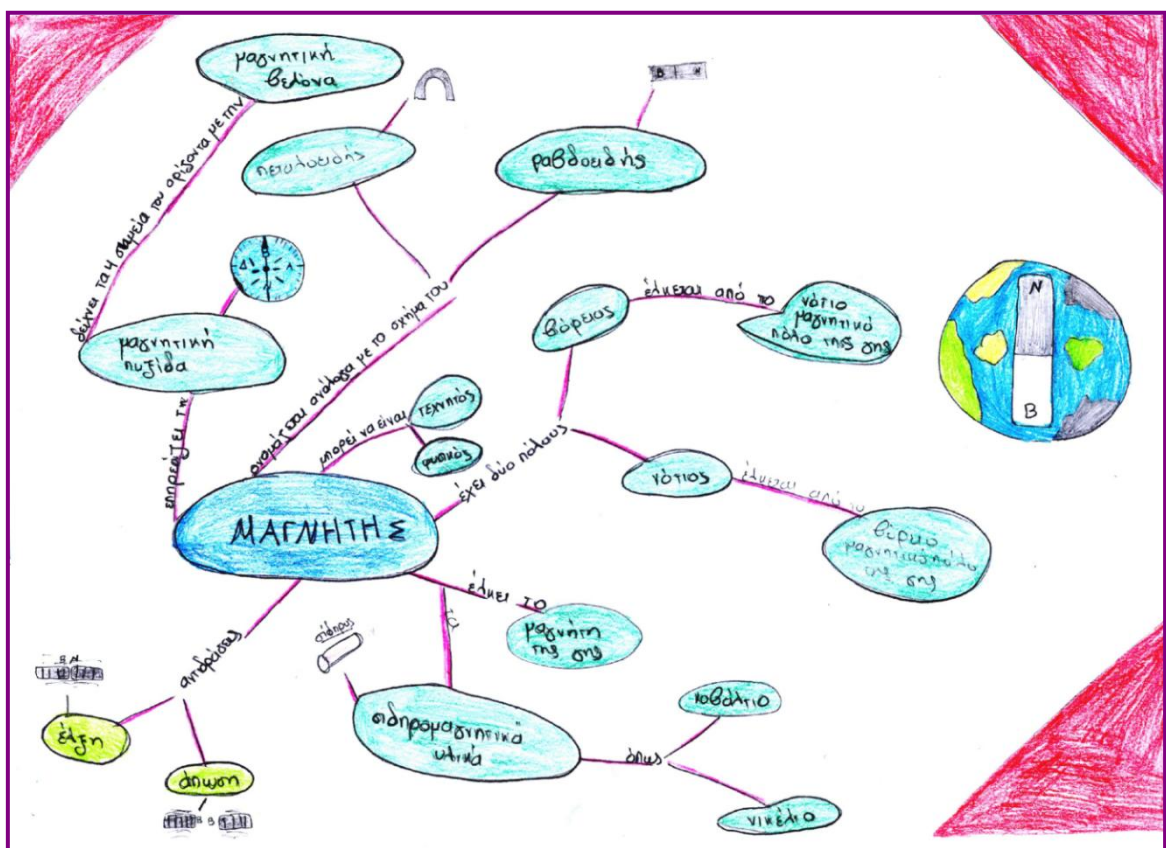 μαγνητική
βελόνα
δείχνει τα 4 σημεία του ορίζοντα με την
πεταλοειδής
Β Ν
ραβδοειδής
Β
Δ Λ
μαγνητική
πυξίδα
επηρεάζει τη
ονομάζεται ανάλογα με το σχήμα του
μπορεί να είναι
τεχνητός
φυσικός
έχει δύο πόλους
βόρειος
έλκεται από το
νότιο
μαγνητικό
πόλο της γης
Ν
Β
νότιος
έλκεται από το
βόρειο
μαγνητικό πόλο
της γης
ΜΑΓΝΗΤΗΣ
έλκει το
μαγνήτη
της γης
τα
σίδηρος
σιδηρομαγνητικά
υλικά
όπως
κοβάλτιο
νικέλιο
αντιδράσεις
Β Ν
έλξη
άπωση
Β Β